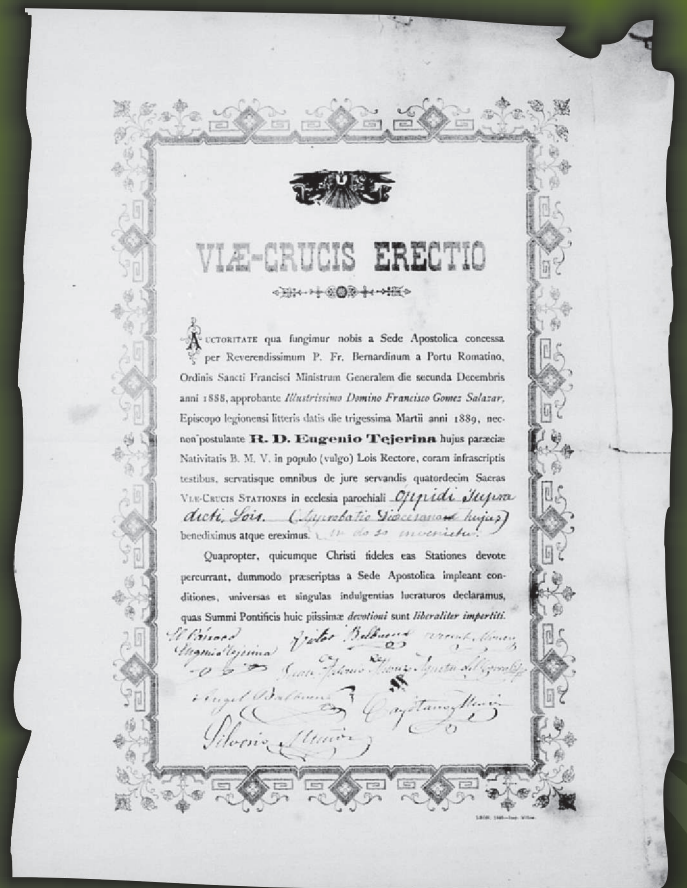 VIÆ-CRUCIS ERECTIO
AUCTORITATE qua fungimur nobis a Sede Apostolica concessa
per Reverendissimum P. Fr. Bernardinum a Portu Romatino,
Ordinis Sancti Francisci Ministrum Generalem die secunda Decembris
anni 1888, approbante Illustrissimo Domino Francisco Gomez Salazar,
Episcopo legionensi litteris datis die trigessima Martii anni 1889, nec-
non postulante R. D. Eugenio Tejerina hujus paræciæ
Nativitatis B. M. V. in populo (vulgo) Lois Rectore, coram infrascriptis
testibus, servatisque omnibus de jure servandis quatordecim Sacras
VIÆ-CRUCIS STATIONES in ecclesia parochiali oppidi supra
dicti, Lois. (Aprobatio Diocesana hujus)
benedisimus atque ereximus. in dorso invenietur.
Quapropter, quicumque Christi fideles eas Stationes devote
percurrant, dummodo præscriptas a Sede Apostolica impleant con-
ditiones, universas et singulas indulgentias lucraturos declaramus,
quas Summi Pontificis huic piissimæ devotioni sunt liberaliter impertiti.
El Párroco Victor Balbuena
Eugenio Tejerina
Juan Antonio
Angel Balbuena Cayetano Muñiz
Silverio Muñiz